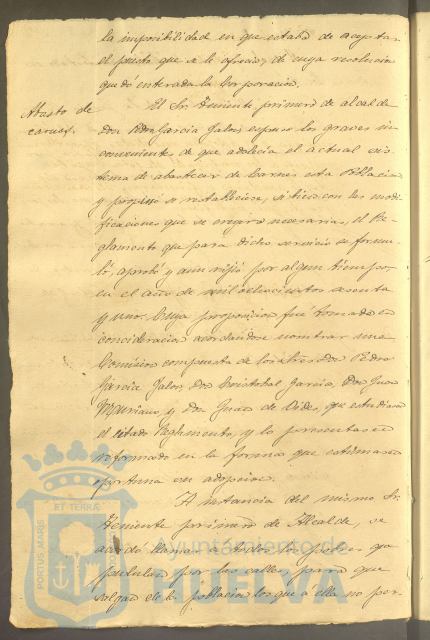 la imposibilidad en que estaba de aceptar
el puesto que se le ofrecia, de cuya resolucion
quedó enterada la Corporacion.
Abasto de
carnes.
El Sr. Teniente primero de alcalde
don Pedro Garcia Jalon espuso los graves in-
convenientes de que adolecia el actual sis-
tema de abastecer de Carnes esta Poblacion
y propuso se restableciese, si bien con las modi-
ficaciones que se creyeran necesarias, el Re-
glamento que para dicho servicio se formu-
ló, aprobó y aun rigió por algun tiempo,
en el año de mil ochocientos sesenta
y uno. Cuya proposicion fué tomada en
concideracion acordandose nombrar una
Comision compuesta de los Sres. Don Pedro
Garcia Jalon, Don Cristobal Garcia, Don Juan
Mauriano, y Don Juan de Vides, que estudiaran
el citado Reglamento, y lo presentasen
reformado en la forma que estimasen
oportuna en adopcion.
A instancia del mismo Sr.
Teniente primero de Alcalde, se
acordó llamar a todos los pobres que
pululan por las calles para que
salgan de la poblacion los que á ella no per-
PORTUS MARIS ET TERRÆ
Ayuntamiento de
HUELVA